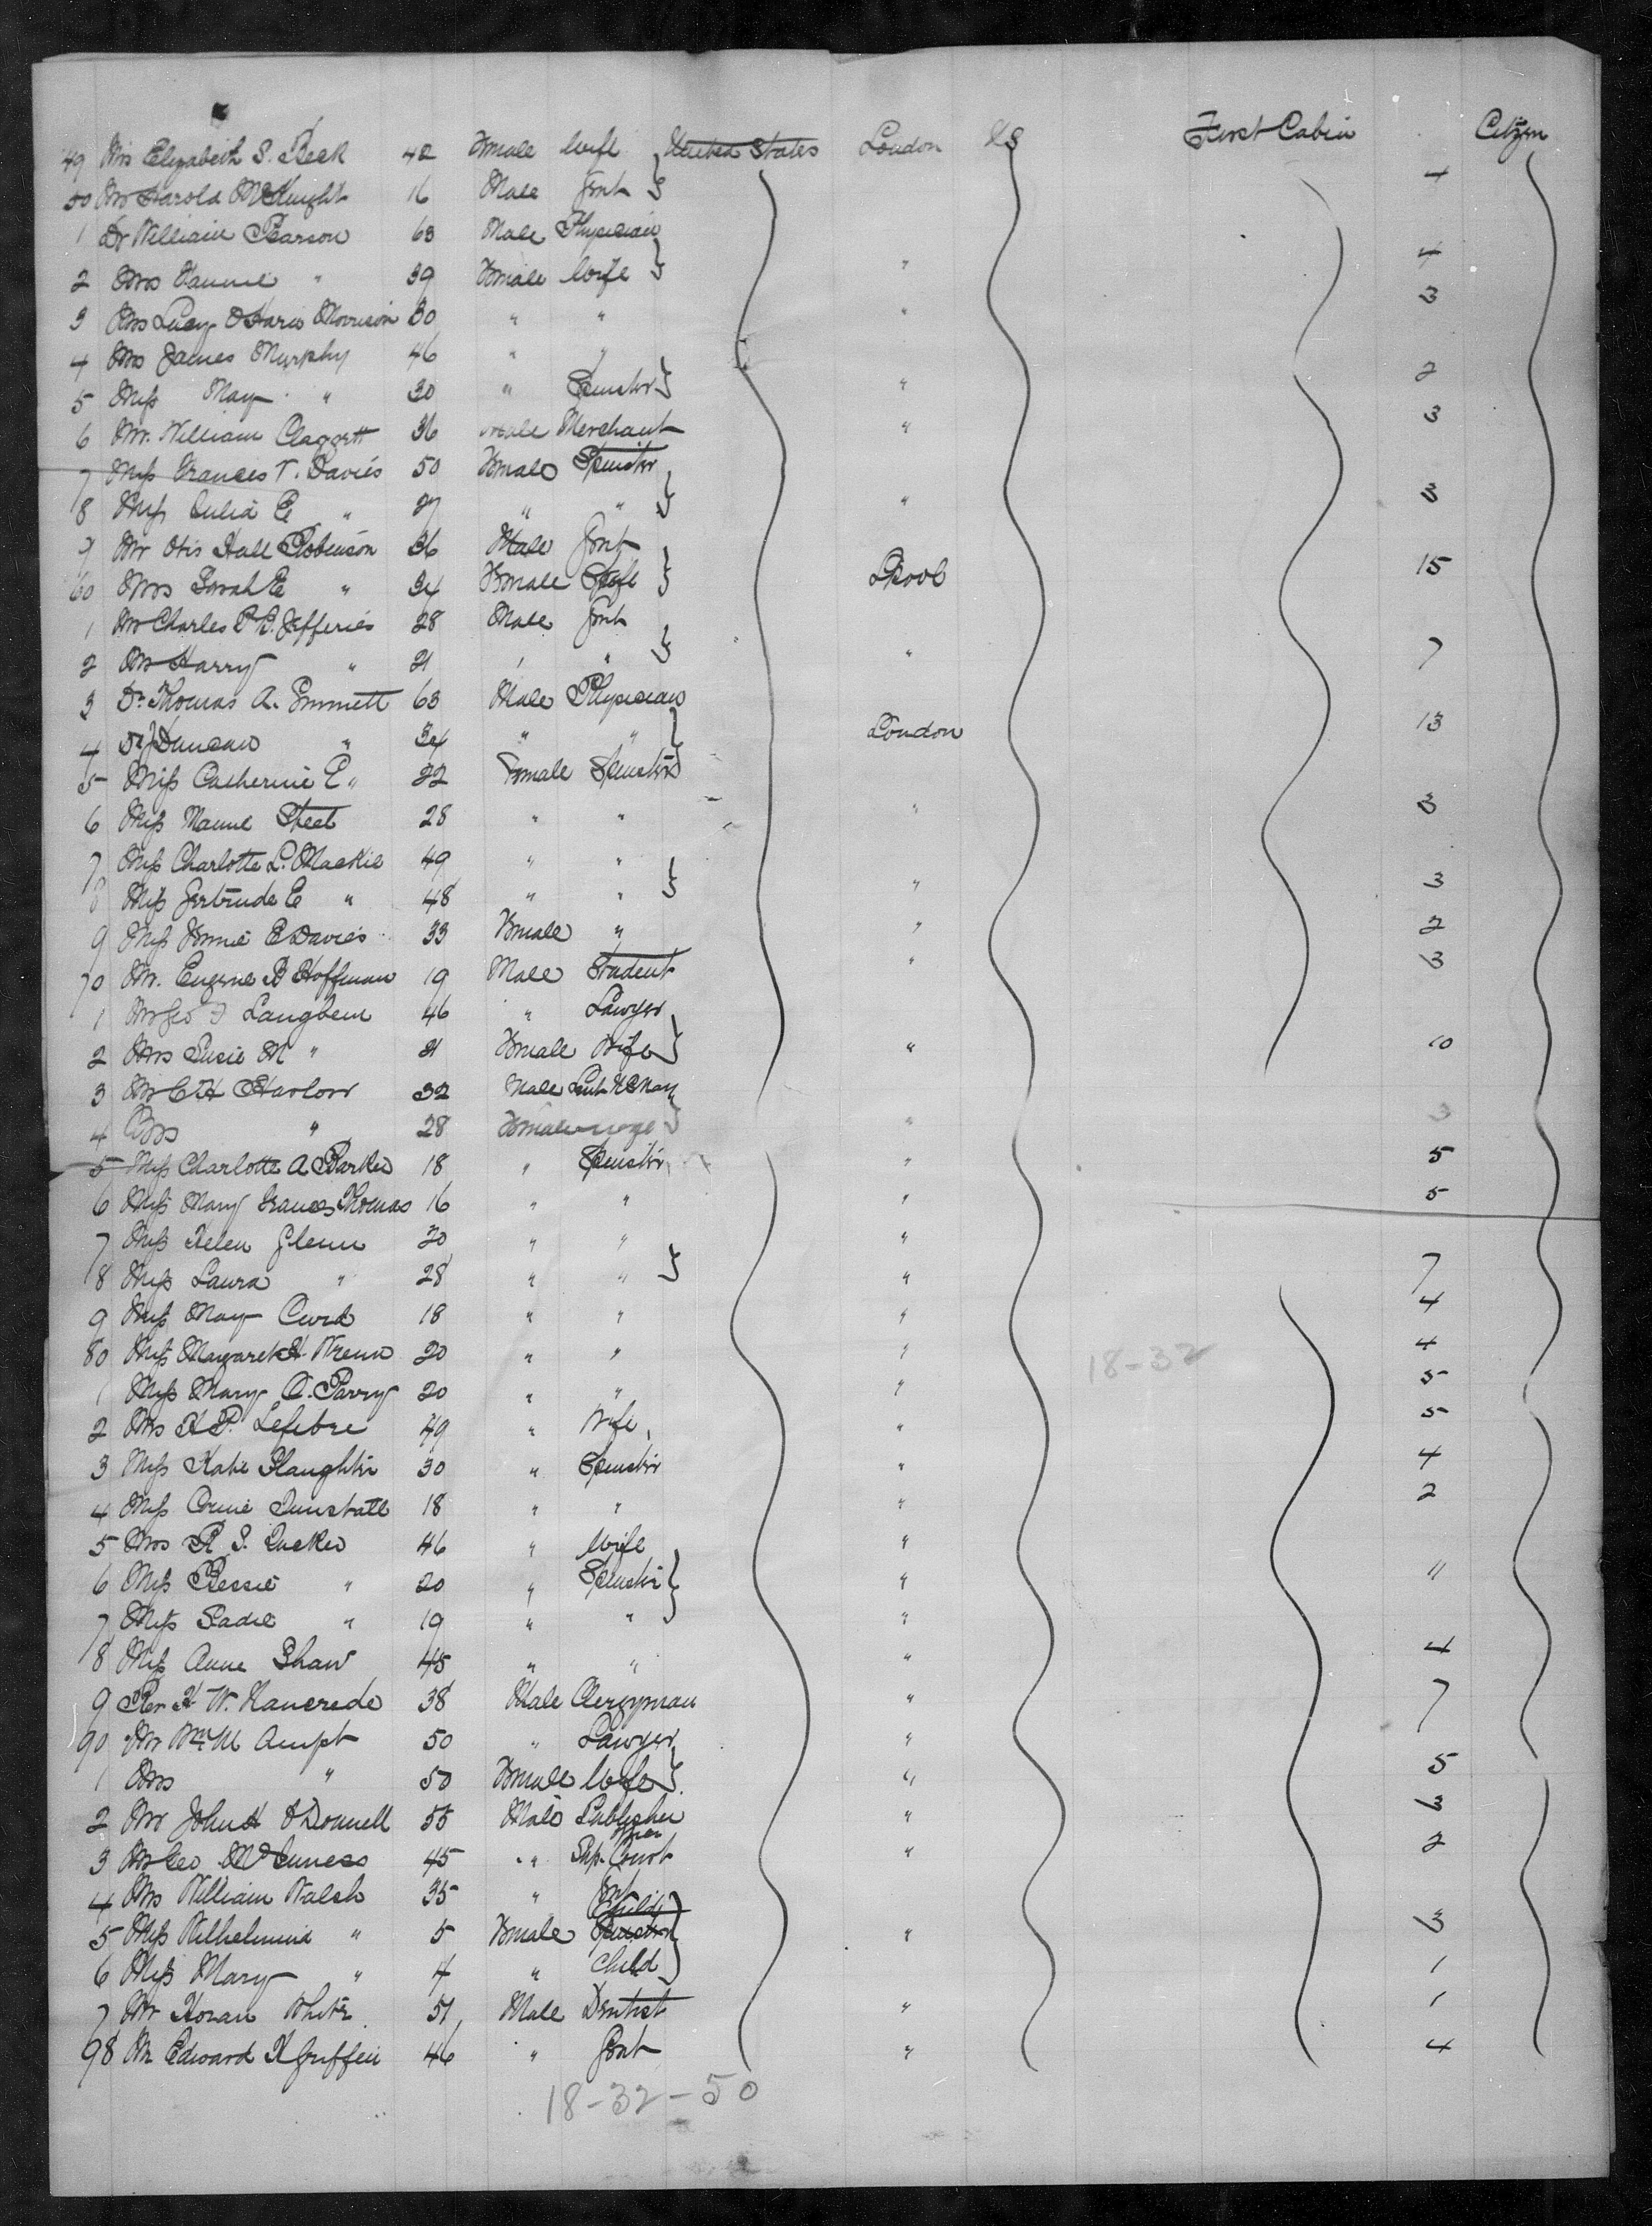 49 Mrs Elizabeth S. Beek 42 Female Wife United States London US First Cabin Citizen
50 Mr Harold McKnight 16 Male Gent 4
1 Dr William Pearson 63 Male Physician
2 Mrs Fannie " 39 Female Wife " 4
3 Mrs Lucy Morrison 30 " " " 3
4 Mrs James Murphy 46 " "
5 Miss May " 30 " Spinster " 2
6 Mr. William Claggett 36 Male Merchant " 3
7 Miss Frances T. Davies 50 Female Spinster
8 Miss Julia E " 27 " " " 3
9 Mr Otis Hall Robinson 36 Male Gent
60 Mrs Sarah E " 34 Female Wife Lpool 15
1 Mr Charles P B. Jefferies 28 Male Gent
2 Mr Harry " 21 " " " 7
3 Dr Thomas A. Emmett 63 Male Physician
4 Dr J Duncan " 34 " " London 13
5 Miss Catherine E " 22 Female Spinster
6 Miss Mamie Steet 28 " " " 3
7 Miss Charlotte L. Mackie 49 " "
8 Miss Gertrude E " 48 " " " 3
9 Miss E Davies 33 Female " " 2
70 Mr. Eugene B Hoffman 19 Male Student " 3
1 Mr Geo F Langbein 46 " Lawyer
2 Mrs Susie M " 21 Female Wife " 10
3 Mr C H Harlow 32 Male Lieut U S Navy
4 Mrs " 28 Female " 3
5 Miss Charlotte A Barker 18 " Spinster " 5
6 Miss Mary Frances Thomas 16 " " " 5
7 Miss Helen Glenn 20 " " "
8 Miss Laura " 28 " " " 7
9 Miss May Curd 18 " " " 4
80 Miss Margaret H. Wrenn 20 " " " 18-32 4
1 Miss Mary A. Parry 20 " " " 5
2 Mrs H P. Lefebre 49 " Wife " 5
3 Miss Katie Slaughter 30 " Spinster " 4
4 Miss Dunstall 18 " " " 2
5 Mrs R S. Tucker 46 " Wife "
6 Miss Bessie " 20 " Spinster " 11
7 Miss Sadie " 19 " " "
8 Miss Anne Shaw 45 " " " 4
9 Rev H W. 38 Male Clergyman " 7
90 Mr Wm M Ampt 50 " Lawyer "
1 Mrs " 50 Female Wife " 5
2 Mr John H O'Donnell 55 Male Publisher " 3
3 Mr Geo McInness 45 " Sup. Court " 2
4 Mrs William Walsh 35 " Gent
5 Miss Wilhelmina " 5 Female Spinster Child " 3
6 Miss Mary " 4 " Child 1
7 Mr Horan White 51 Male Dentist " 1
98 Mr Edward H Griffin 46 " Gent " 4
18-32-50